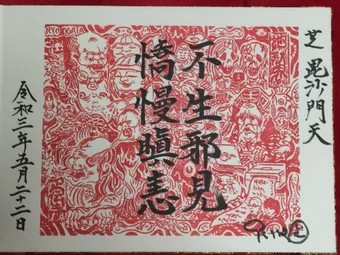 芝 毘沙門天
不生邪見
憍慢瞋恚
令和三年五月二十二日